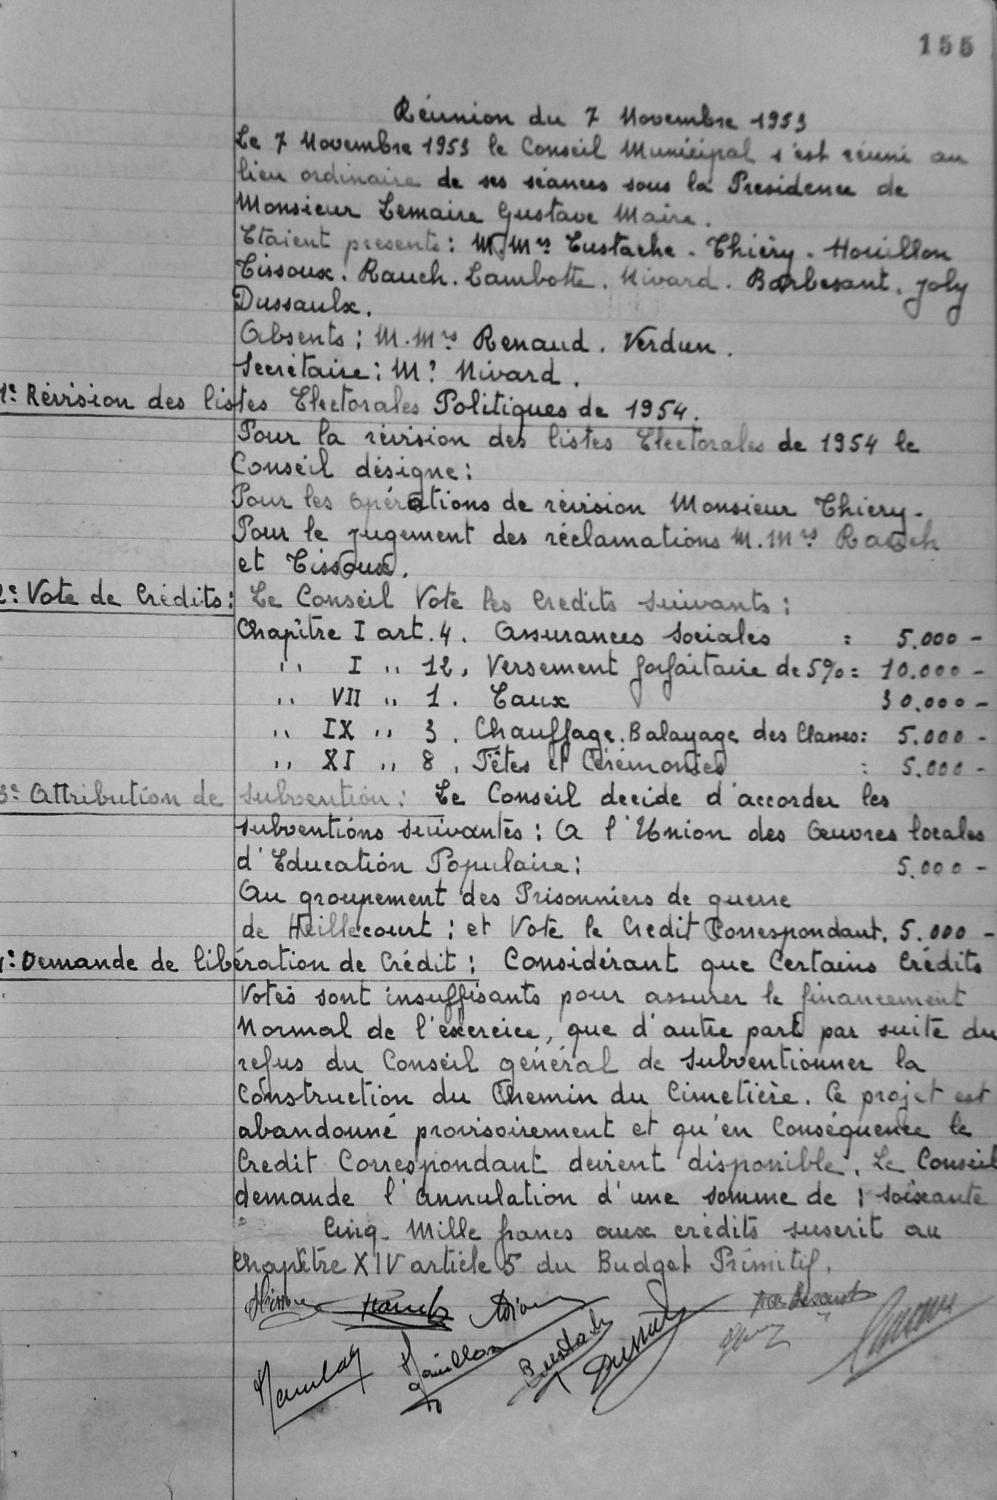 155
Réunion du 7 Novembre 1953
Le 7 Novembre 1953 le Conseil Municipal s'est réuni au
lieu ordinaire de ses séances sous la Presidence de
Monsieur Lemaire Gustave Maire.
Etaient presents : M.Mrs Eustache . Thiéry . Houillon
Tissoux . Rauch . Lambotte . Nivard . Barbesant . Joly
Dussaulx.
Absents : M.Mrs Renaud . Verdun .
Secrétaire : Mr Nivard .
1°: Révision des listes Electorales Politiques de 1954.
Pour la révision des listes Electorales de 1954 le
Conseil désigne :
Pour les opérations de révision Monsieur Thiery .
Pour le jugement des réclamations M.Mrs Rauch
et Tissoux.
2°: Vote de Crédits : Le Conseil Vote les Credits suivants :
Chapître I art. 4 . Assurances Sociales : 5.000 -
'' I '' 12 . Versement forfaitaire de 5% = 10.000 -
'' VII '' 1 . Eaux 30.000 -
'' IX '' 3 . Chauffage . Balayage des Classes : 5.000 -
'' XI '' 8 . Fêtes et Cérémonies : 5.000 -
3°: Attribution de subvention : Le Conseil decide d'accorder les
subventions suivantes : A l'Union des Œuvres locales
d'Education Populaire : 5.000 -
Au groupement des Prisonniers de guerre
de Heillecourt : et Vote le Credit Correspondant. 5.000 -
4°: Demande de libération de Crédit : Considérant que Certains Crédits
Votés sont insuffisants pour assurer le financement
Normal de l'exercice, que d'autre part par suite du
refus du Conseil général de Subventionner la
Construction du Chemin du Cimetière. Ce projet est
abandonné provisoirement et qu'en Conséquence le
Credit Correspondant devient disponible. Le Conseil
demande l'annulation d'une somme de : soixante
Cinq Mille francs aux crédits suscrit au
Chapître XIV article 5 du Budget Primitif.
Rauch
Houillon
Eustache
Dussaulx
Barbesant